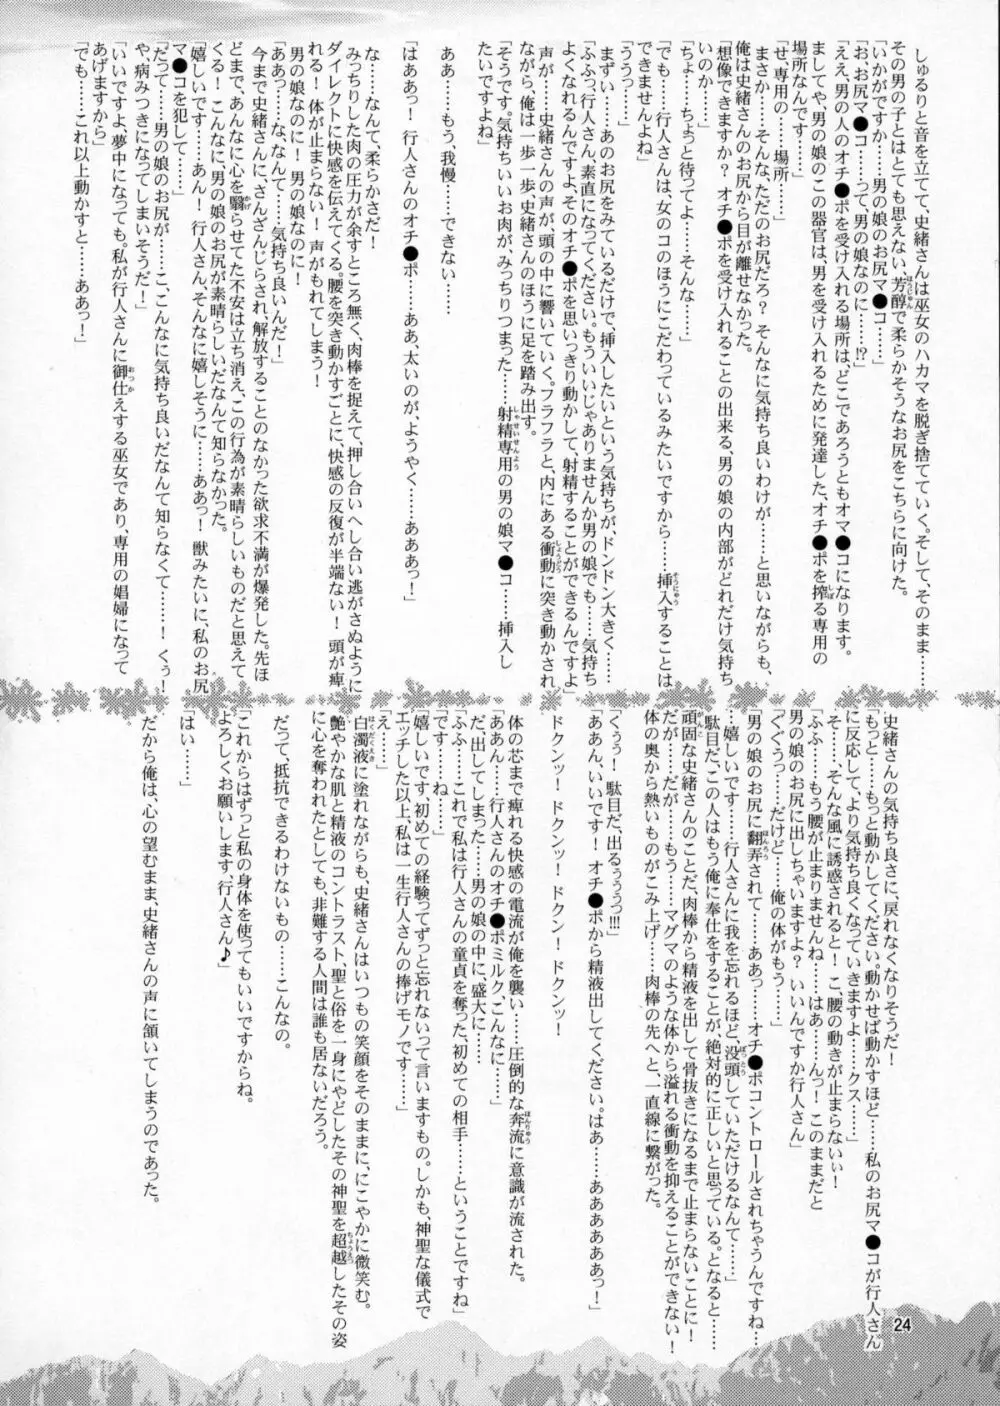 しゅるりと音を立てて、史緒さんは巫女のハカマを脱ぎ捨てていく。そして、そのまま……
その男の子とはとても思えない、芳醇で柔らかそうなお尻をこちらに向けた。
「いかがですか……男の娘のお尻マ●コ……」
「お、お尻マ●コ……って、男の娘なのに……!?」
「ええ、男の人のオチ●ポを受け入れる場所は、どこであろうともオマ●コになります。
ましてや、男の娘のこの器官は、男を受け入れるために発達した、オチ●ポを搾る専用の
場所なんです……」
「せ、専用の……場所……」
まさか……そんな、ただのお尻だろ? そんなに気持ち良いわけが……と思いながらも、
俺は史緒さんのお尻から目が離せなかった。
「想像できますか? オチ●ポを受け入れることの出来る、男の娘の内部がどれだけ気持ち
いいのか……」
「ちょ……ちょっと待ってよ……そんな……」
「でも……行人さんは、女のコのほうにこだわっているみたいですから……挿入することは
できませんよね」
「ううっ……」
まずい……あのお尻をみているだけで、挿入したいという気持ちが、ドンドン大きく……
「ふふっ、行人さん、素直になってください。もういいじゃありませんか男の娘でも……気持ち
よくなれるんですよ、そのオチ●ポを思いっきり動かして、射精することができるんですよ」
声が……史緒さんの声が、頭の中に響いていく。フラフラと、内にある衝動に突き動かされ
ながら、俺は一歩一歩、史緒さんのほうに足を踏み出す。
「そうです。気持ちいいお肉が、みっちりつまった……射精専用の男の娘マ●コ……挿入し
たいですよね」
ああ……もう、我慢……できない……
「はああっ! 行人さんのオチ●ポ……ああ、太いのが、ようやく……あああっ!」
な……なんて、柔らかさだ!
みっちりした肉の圧力が余すところ無く、肉棒を捉えて、押し合いへし合い逃がさぬように
ダイレクトに快感を伝えてくる。腰を突き動かすごとに、快感の反復が半端ない! 頭が痺
れる! 体が止まらない! 声がもれてしまう!
男の娘なのに! 男の娘なのに!
「ああっ……な、なんて……気持ち良いんだ!」
今まで史緒さんに、さんざんじらされ、解放することのなかった欲求不満が爆発した。先ほ
どまで、あんなに心を翳らせてた不安は立ち消え、この行為が素晴らしいものだと思えて
くる! こんなに、男の娘のお尻が素晴らしいだなんて知らなかった。
「嬉しいです……あん! 行人さん、そんなに嬉しそうに……ああっ! 獣みたいに、私のお尻
マ●コを犯して……」
「だって……男の娘のお尻が……こ、こんなに気持ち良いだなんて知らなくて……! くぅ!
や、病みつきになってしまいそうだ!」
「いいですよ、夢中になっても。私が行人さんに御仕えする巫女であり、専用の娼婦になって
あげますから」
「でも……これ以上動かすと……ああっ!」
史緒さんの気持ち良さに、戻れなくなりそうだ!
「もっと……もっと動かしてください。動かせば動かすほど……私のお尻マ●コが行人さん
に反応して、より気持ち良くなっていきますよ……クス……」
そ……そんな風に誘惑されると! こ、腰の動きが止まらないぃ!
「ふふ……もう腰が止まりませんね……はあ……んっ! このままだと
男の娘のお尻に出しちゃいますよ? いいんですか行人さん」
「ぐぐうっ……だけど……俺の体がもう……」
「男の娘のお尻に翻弄されて……ああっ……オチ●ポコントロールされちゃうんですね…
…嬉しいです……行人さんに我を忘れるほど、没頭していただけるなんて……」
駄目だ、この人はもう俺に奉仕をすることが、絶対的に正しいと思っている。となると……
頑固な史緒さんのことだ、肉棒から精液を出して骨抜きになるまで止まらないことに!
だが……だが……もう……マグマのような体から溢れる衝動を抑えることができない!
体の奥から熱いものがこみ上げ……肉棒の先へと、一直線に繋がった。
「くぅぅ! 駄目だ、出るぅぅうっ!!!」
「ああん、いいです! オチ●ポから精液出してください。はぁ……ああああああっ!」
ドクンッ! ドクンッ! ドクン! ドクンッ!
体の芯まで痺れる快感の電流が俺を襲い……圧倒的な奔流に意識が流された。
「ああん……行人さんのオチ●ポミルク、ごんなに……」
だ、出してしまった……男の娘の中に、盛大に……
「ふふ……これで私は行人さんの童貞を奪った、初めての相手……ということですね」
「です……ね……」
「嬉しいです、初めての経験ってずっと忘れないって言いますもの。しかも、神聖な儀式で
エッチした以上、私は一生行人さんの捧げモノです……」
「え……」
白濁液に塗れながらも、史緒さんはいつもの笑顔をそのままに、にこやかに微笑む。
艶やかな肌と精液のコントラスト、聖と俗を一身にやどしたその神聖を超越したその姿
に心を奪われたとしても、非難する人間は誰も居ないだろう。
だって、抵抗できるわけないもの……こんなの。
「これからはずっと私の身体を使ってもいいですからね。
よろしくお願いします、行人さん♪」
「はい……」
だから俺は、心の望むまま、史緒さんの声に頷いてしまうのであった。
24